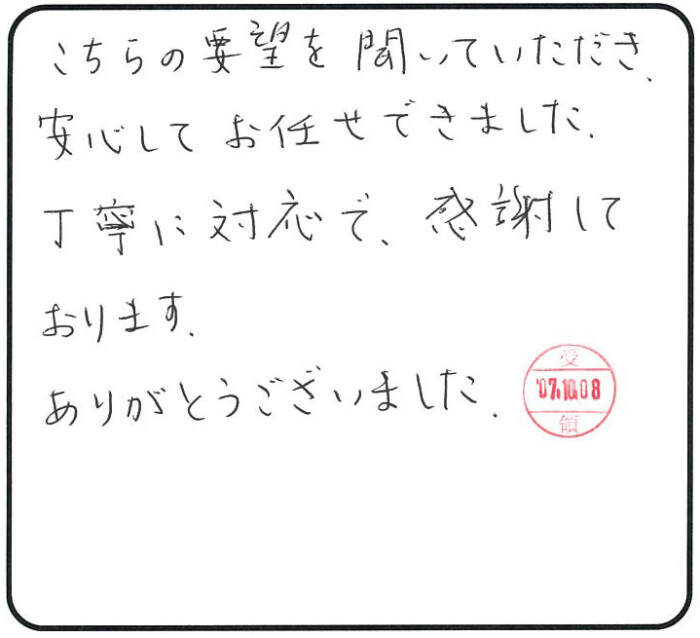 こちらの要望を聞いていただき、
安心してお任せできました.
丁寧に対応で、感謝して
おります.
ありがとうございました.
受
'07.10.08
領